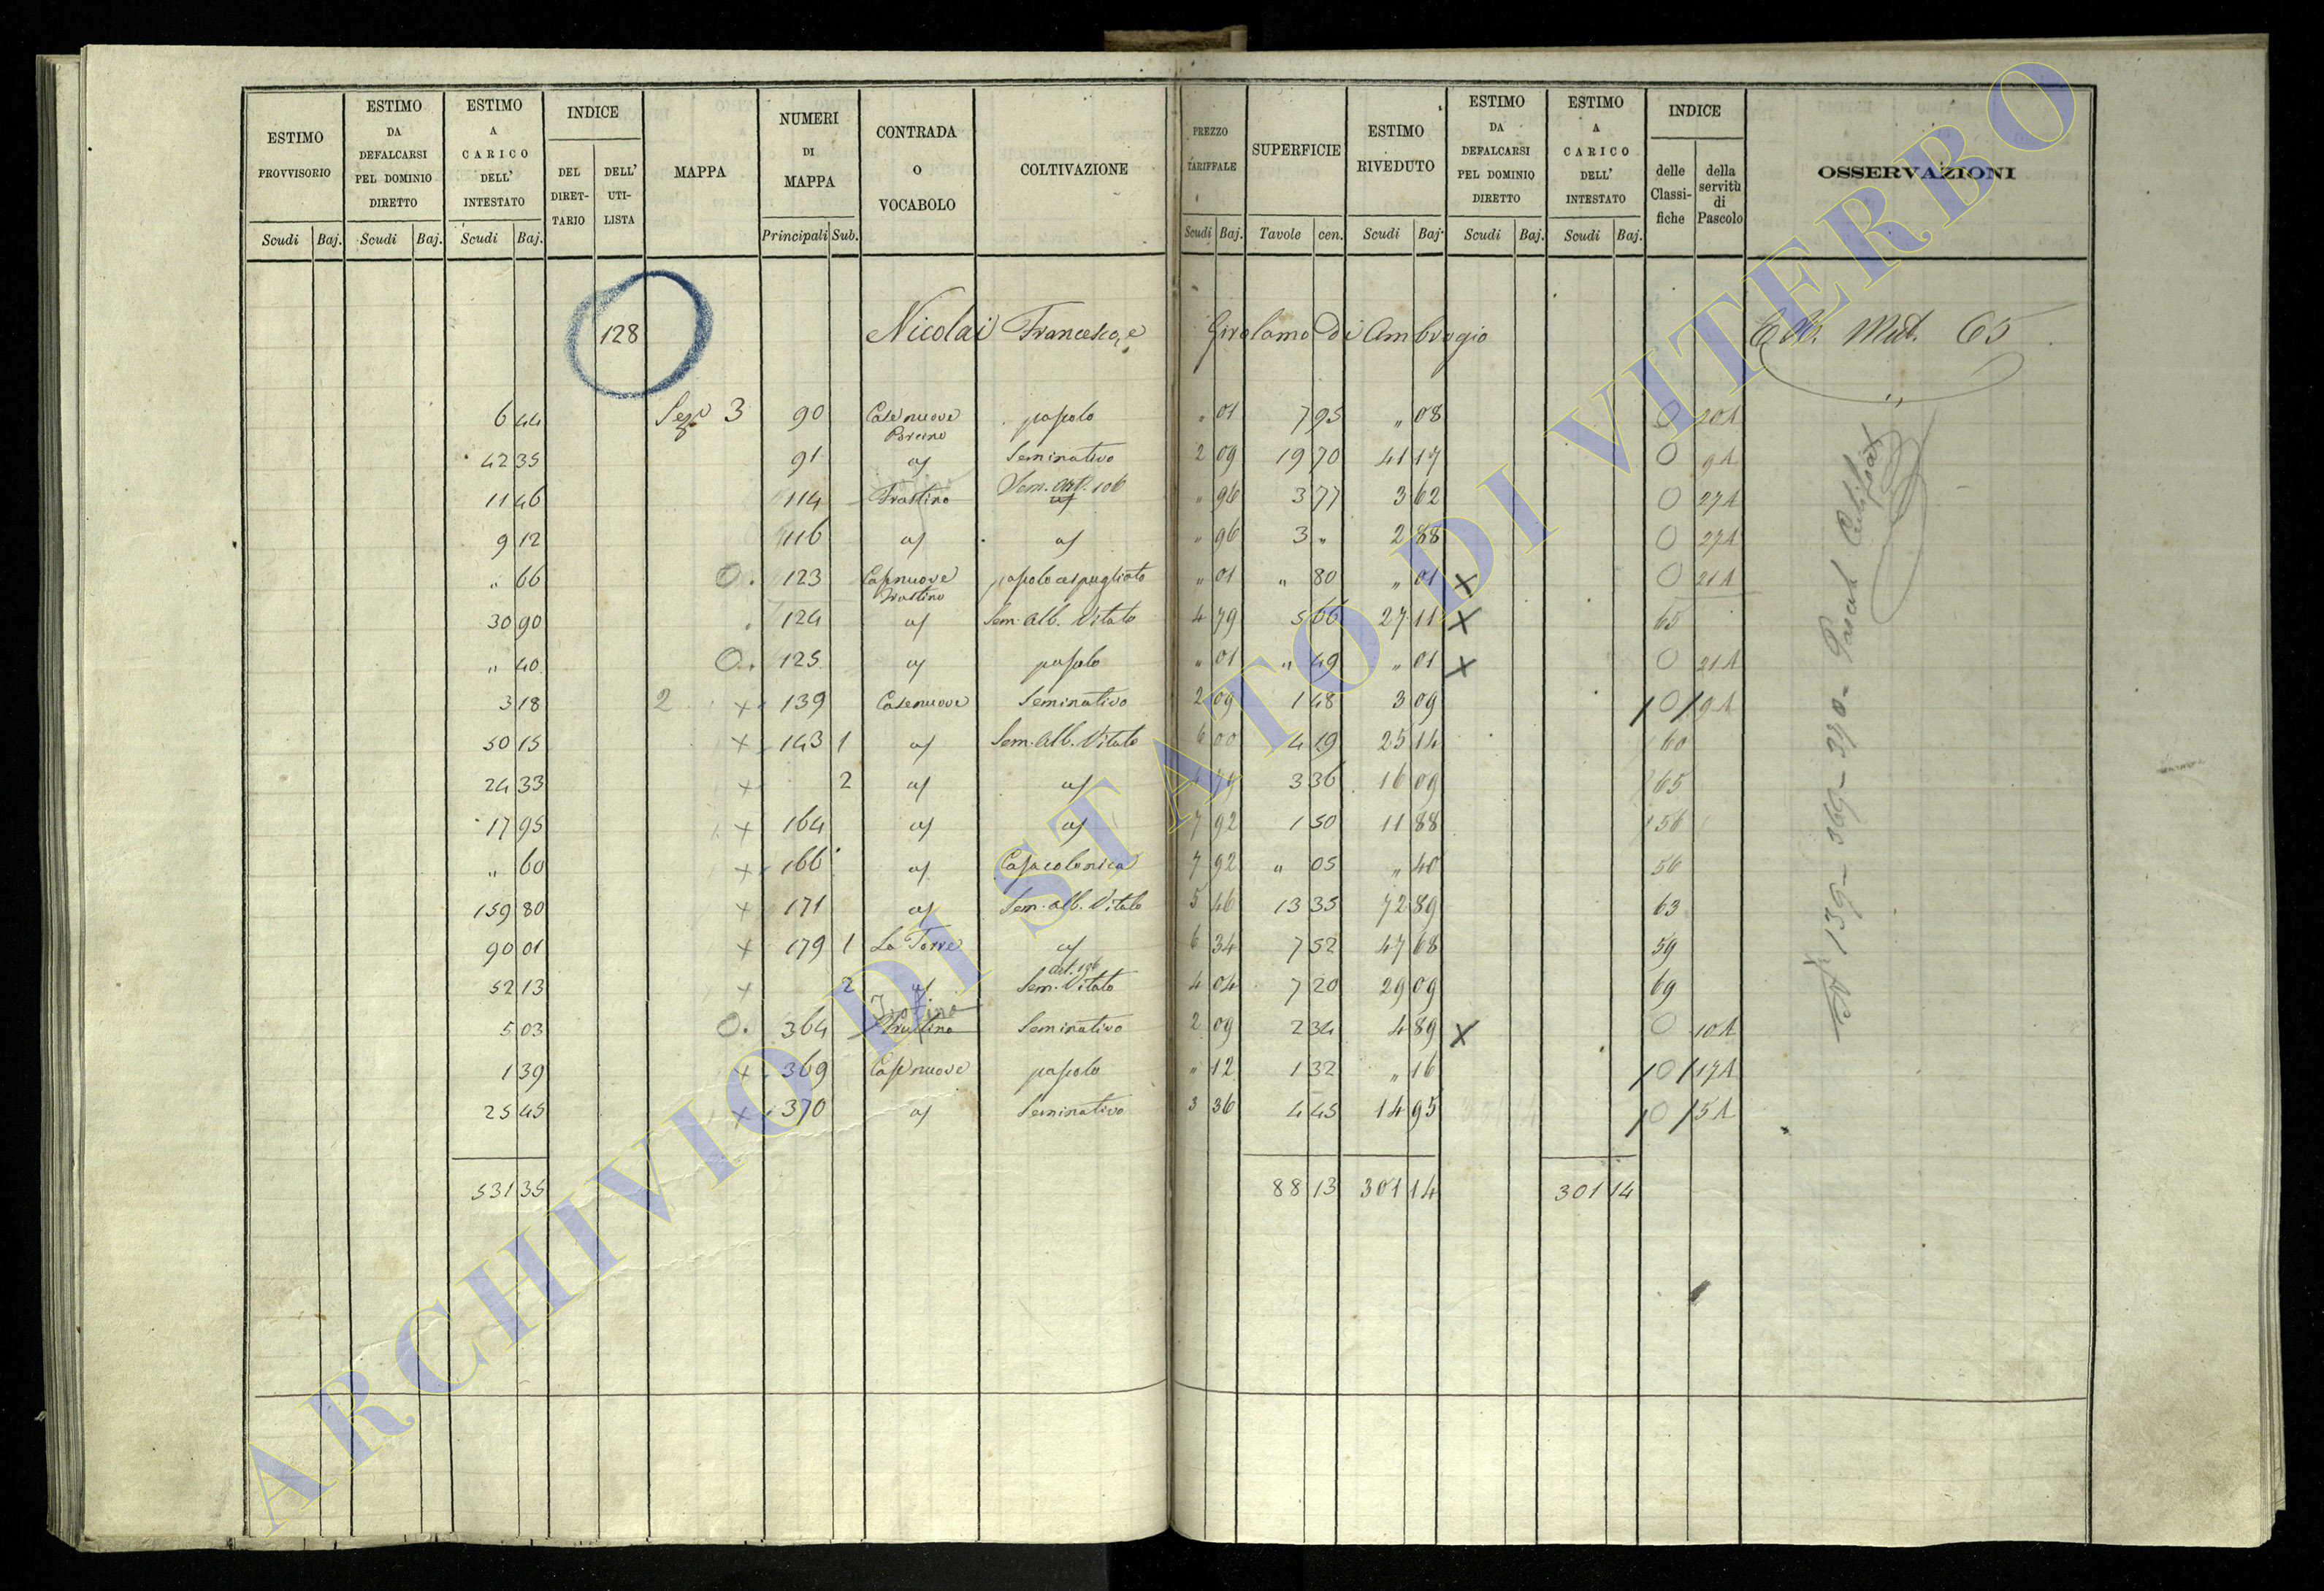 ESTIMO PROVVISORIO Scudi Baj.
ESTIMO DA DEFALCARSI PEL DOMINIO DIRETTO Scudi Baj.
ESTIMO A CARICO DELL' INTESTATO Scudi Baj.
INDICE DEL DIRETTARIO DELL' UTILISTA
MAPPA
NUMERI DI MAPPA Principali Sub.
CONTRADA O VOCABOLO
COLTIVAZIONE
PREZZO TARIFFALE Scudi Baj.
SUPERFICIE Tavole cen.
ESTIMO RIVEDUTO Scudi Baj.
ESTIMO DA DEFALCARSI PEL DOMINIO DIRETTO Scudi Baj.
ESTIMO A CARICO DELL' INTESTATO Scudi Baj.
INDICE delle Classifiche della servitù di Pascolo
OSSERVAZIONI
128 Nicolai Francesco, e Girolamo di Ambrogio Mut. 65
6 44 Sez. 3 90 Casenuove pascolo " 01 7 95 " 08 0 20A
42 35 91 Seminativo 2 09 19 70 41 17 0 9A
11 46 114 Frattino Sem. Art. 106 " 96 3 77 3 62 0 27A
9 12 116 " 96 3 " 2 88 0 27A
" 66 0. 123 Casenuove Frattino pascolo cespugliato " 01 " 80 " 01 X 0 21A
30 90 124 Sem. Alb. Vitato 4 79 5 66 27 11 X 65
" 40 0. 125 pascolo " 01 " 49 " 01 X 0 21A
3 18 2 x 139 Casenuove Seminativo 2 09 1 48 3 09 / 0 / 9A
50 15 x 143 1 Sem. Alb. Vitato 6 00 4 19 25 14 60
24 33 x 2 4 79 3 36 16 09 65
17 95 x 164 7 92 1 50 11 88 56
" 60 x 166 Casa colonica 7 92 " 05 " 40 56
159 80 x 171 Sem. Alb. Vitato 5 46 13 35 72 89 63
90 01 x 179 1 La Torre 6 34 7 52 47 68 59
52 13 x 2 Art. 106 Sem. Vitato 4 04 7 20 29 09 69
5 03 0. 364 Frattino Seminativo 2 09 2 34 4 89 X 0 10A
1 39 x 369 Casenuove pascolo " 12 1 32 " 16 / 0 / 17A
25 45 x 370 Seminativo 3 36 4 45 14 95 / 0 / 5A
531 35 88 13 301 14 301 14
139 - 369 - 370 -
ARCHIVIO DI STATO DI VITERBO